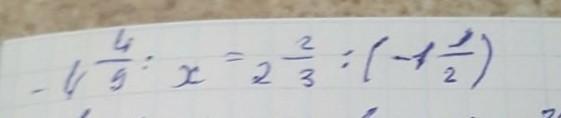 -1 4/9 : x = 2 2/3 : (-1 1/2)